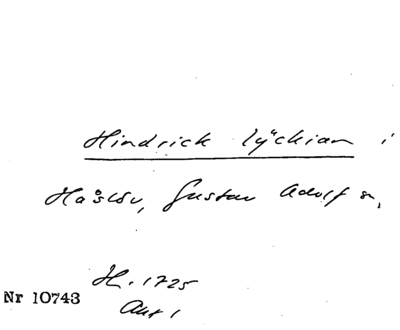 Hindrick Lÿckian i
Haslöv, Gustav Adolf sn,
H. 1725
Akt 1
Nr 10743